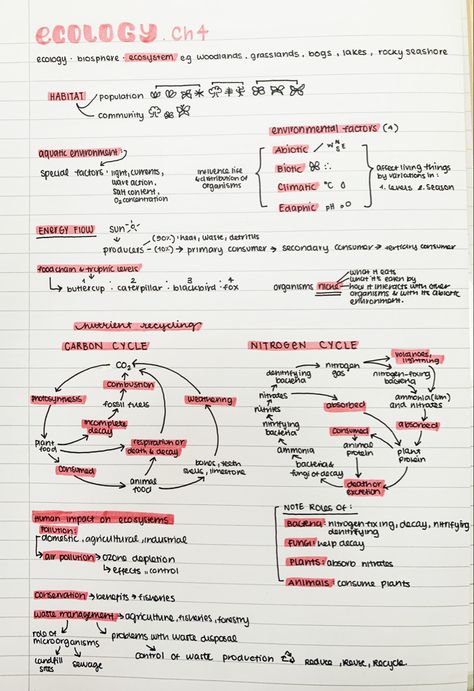 ecology. Ch4
ecology · biosphere · ecosystem eg. woodlands, grasslands, bogs, lakes, rocky seashore
HABITAT
population
community
environmental factors (4)
aquatic environment
special factors: light, currents,
wave action,
salt content,
O2 concentration
influence life
& distribution of
organisms
Abiotic N W E S
Biotic
Climatic °C
Edaphic pH
affect living things
by variations in:
1. levels 2. season
ENERGY FLOW
sun
(90%) · heat, waste, detritus
producers (10%) → primary consumer → secondary consumer → tertiary consumer
food chain & trophic levels
1 2 3 4
buttercup · caterpillar · blackbird · fox
organisms niche
what it eats
what it's eaten by
how it interacts with other
organisms & with its abiotic
environment.
nutrient recycling
CARBON CYCLE
CO2
combustion
fossil fuels
photosynthesis
incomplete
decay
weathering
respiration or
death & decay
plant
food
consumed
animal
food
bones, teeth
limestone
NITROGEN CYCLE
volcanoes,
lightning
denitrifying
bacteria
nitrogen
gas
nitrogen-fixing
bacteria
nitrates
absorbed
ammonia
and nitrates
nitrites
nitrifying
bacteria
consumed
absorbed
ammonia
animal
protein
plant
protein
bacteria &
fungi of decay
death or
excretion
Human impact on ecosystems
Pollution:
domestic, agricultural, industrial
air pollution → ozone depletion
effects, control
NOTE ROLES OF:
Bacteria: nitrogen fixing, decay, nitrifying
denitrifying
Fungi: help decay
Plants: absorb nitrates
Animals: consume plants
conservation → benefits → fisheries
waste management → agriculture, fisheries, forestry
role of
microorganisms
problems with waste disposal
landfill
sites
sewage
control of waste production
reduce, reuse, recycle.